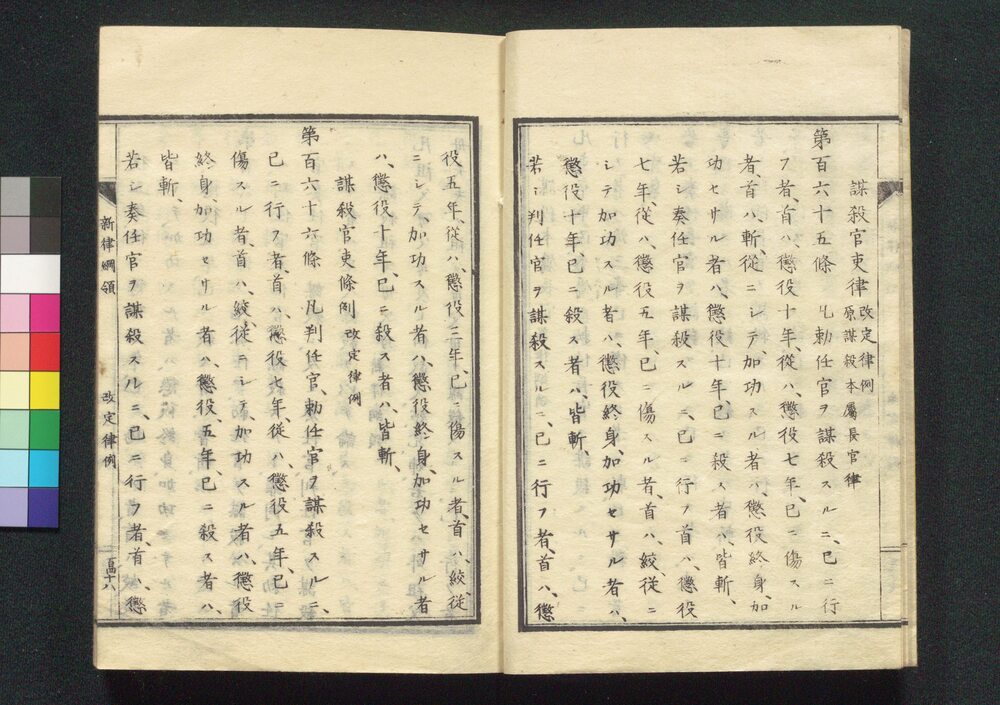 謀殺官吏律 改定律例
原謀殺本屬長官律
第百六十五條 凡勅任官ヲ謀殺スルニ、已ニ行
フ者、首ハ、懲役十年、従ハ、懲役七年、已ニ傷スル
者、首ハ、斬、従ニシテ加功スル者ハ、懲役終身、加
功セサル者ハ、懲役十年、已ニ殺ス者ハ、皆斬、
若シ奏任官ヲ謀殺スルニ、已ニ行フ者、首ハ、懲役
七年、従ハ、懲役五年、已ニ傷スル者、首ハ、絞、従ニ
シテ加功スル者ハ、懲役終身、加功セサル者ハ、
懲役十年、已ニ殺ス者ハ、皆斬、
若シ判任官ヲ謀殺スルニ、已ニ行フ者、首ハ、懲
役五年、従ハ、懲役三年、已ニ傷スル者、首ハ、絞、従
ニシテ加功スル者ハ、懲役終身、加功セサル者
ハ、懲役十年、已ニ殺ス者ハ、皆斬、
謀殺官吏條例 改定律例
第百六十六條 凡判任官、勅任官ヲ謀殺スルニ、
已ニ行フ者、首ハ、懲役七年、従ハ、懲役五年、已ニ
傷スル者、首ハ、絞、従ニシテ、加功スル者ハ、懲役
終身、加功セサル者ハ、懲役五年、已ニ殺ス者ハ、
皆斬、
若シ奏任官ヲ謀殺スルニ、已ニ行フ者、首ハ、懲
新律綱領 改定律例